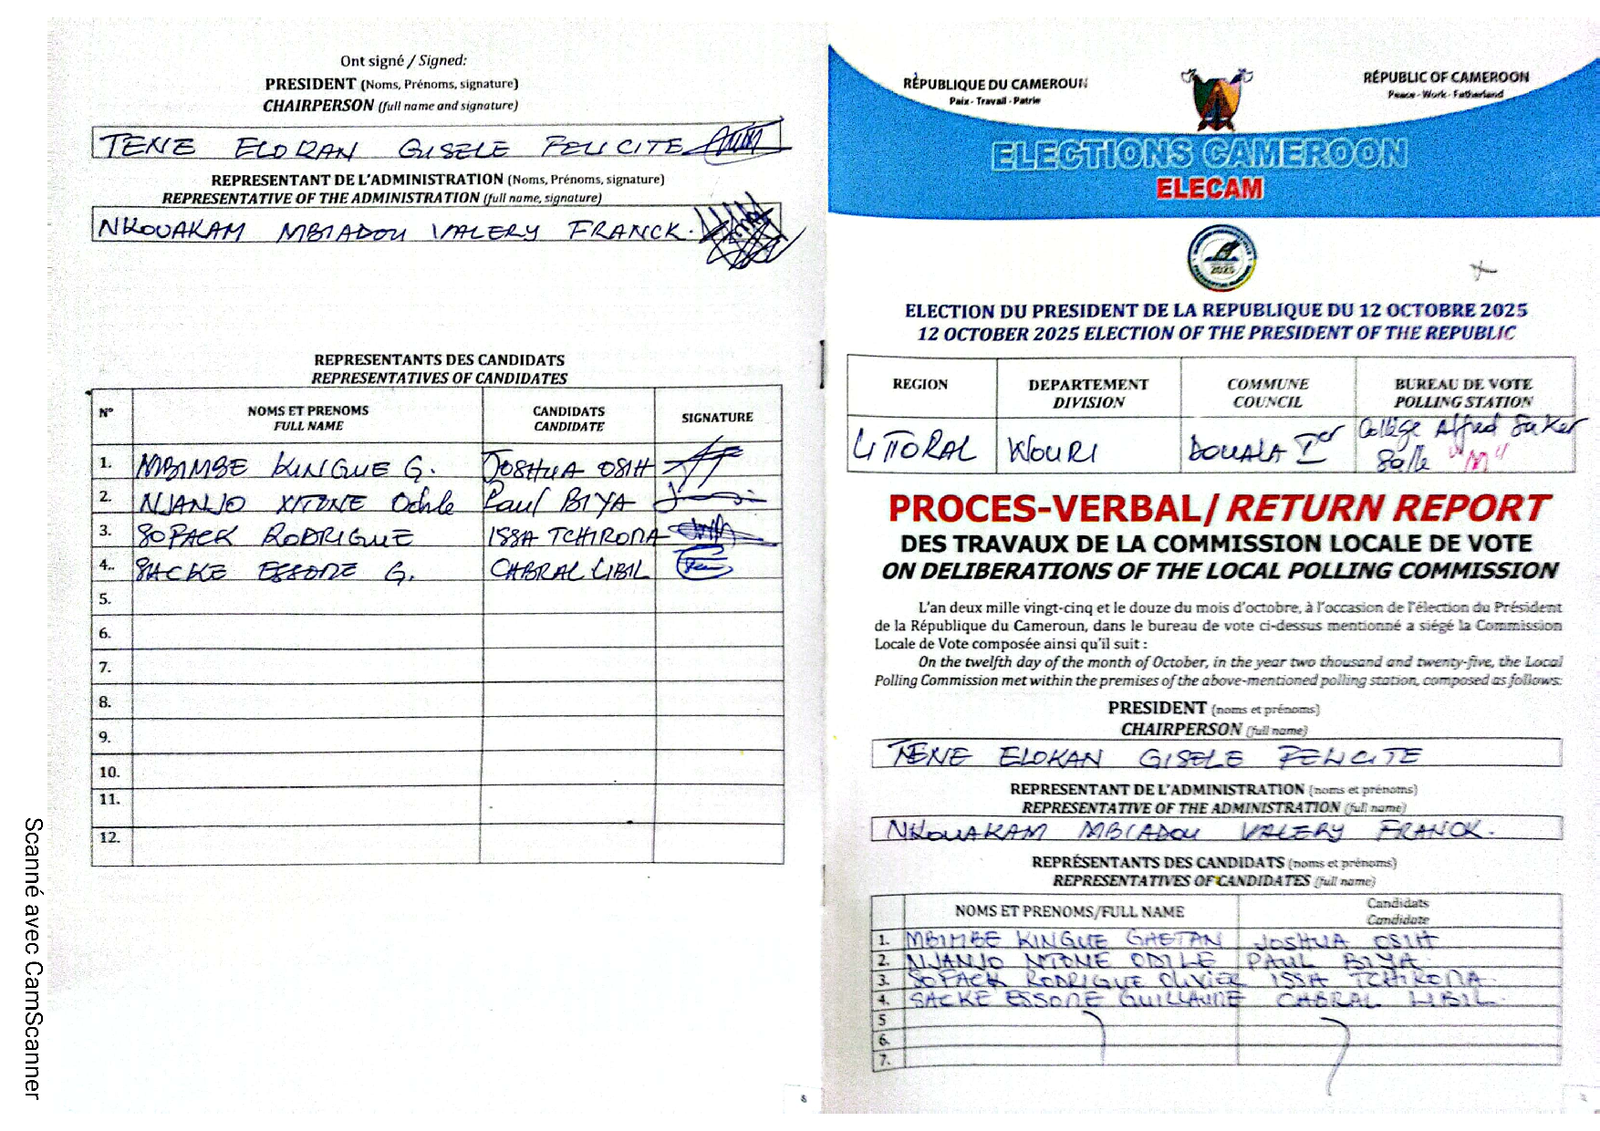 Ont signé / Signed:
PRESIDENT (Noms, Prénoms, signature)
CHAIRPERSON (full name and signature)
TENE ELOKAN GISELE FELICITE
REPRESENTANT DE L'ADMINISTRATION (Noms, Prénoms, signature)
REPRESENTATIVE OF THE ADMINISTRATION (full name, signature)
NKOUAKAM MBIADOU VALERY FRANCK.
REPRESENTANTS DES CANDIDATS
REPRESENTATIVES OF CANDIDATES
N° NOMS ET PRENOMS CANDIDATS SIGNATURE
FULL NAME CANDIDATE
1. MBIMBE KINGUE G. JOSHUA OSIH
2. NJANJO NTONE Odile Paul BIYA
3. SOPACK RODRIGUE ISSA TCHIROMA
4. SACKE ESSOME G. CABRAL LIBIL
5.
6.
7.
8.
9.
10.
11.
12.
8
Scanné avec CamScanner
RÉPUBLIQUE DU CAMEROUN
Paix - Travail - Patrie
RÉPUBLIC OF CAMEROON
Peace - Work - Fatherland
ELECTIONS CAMEROON
ELECAM
2025
ELECTION DU PRESIDENT DE LA REPUBLIQUE DU 12 OCTOBRE 2025
12 OCTOBER 2025 ELECTION OF THE PRESIDENT OF THE REPUBLIC
REGION DEPARTEMENT COMMUNE BUREAU DE VOTE
DIVISION COUNCIL POLLING STATION
LITTORAL WOURI DOUALA Ier Collège Alfred Saker
Salle "M"
PROCES-VERBAL/RETURN REPORT
DES TRAVAUX DE LA COMMISSION LOCALE DE VOTE
ON DELIBERATIONS OF THE LOCAL POLLING COMMISSION
L'an deux mille vingt-cinq et le douze du mois d'octobre, à l'occasion de l'élection du Président
de la République du Cameroun, dans le bureau de vote ci-dessus mentionné a siégé la Commission
Locale de Vote composée ainsi qu'il suit :
On the twelfth day of the month of October, in the year two thousand and twenty-five, the Local
Polling Commission met within the premises of the above-mentioned polling station, composed as follows:
PRESIDENT (noms et prénoms)
CHAIRPERSON (full name)
TENE ELOKAN GISELE FELICITE
REPRESENTANT DE L'ADMINISTRATION (noms et prénoms)
REPRESENTATIVE OF THE ADMINISTRATION (full name)
NKOUAKAM MBIADOU VALERY FRANCK.
REPRÉSENTANTS DES CANDIDATS (noms et prénoms)
REPRESENTATIVES OF CANDIDATES (full name)
NOMS ET PRENOMS/FULL NAME Candidats
Candidate
1. MBIMBE KINGUE GAETAN JOSHUA OSIH
2. NJANJO NTONE ODILE PAUL BIYA
3. SOPACK RODRIGUE OLIVIER ISSA TCHIROMA
4. SACKE ESSOME GUILLAUME CABRAL LIBIL
5
6.
7.